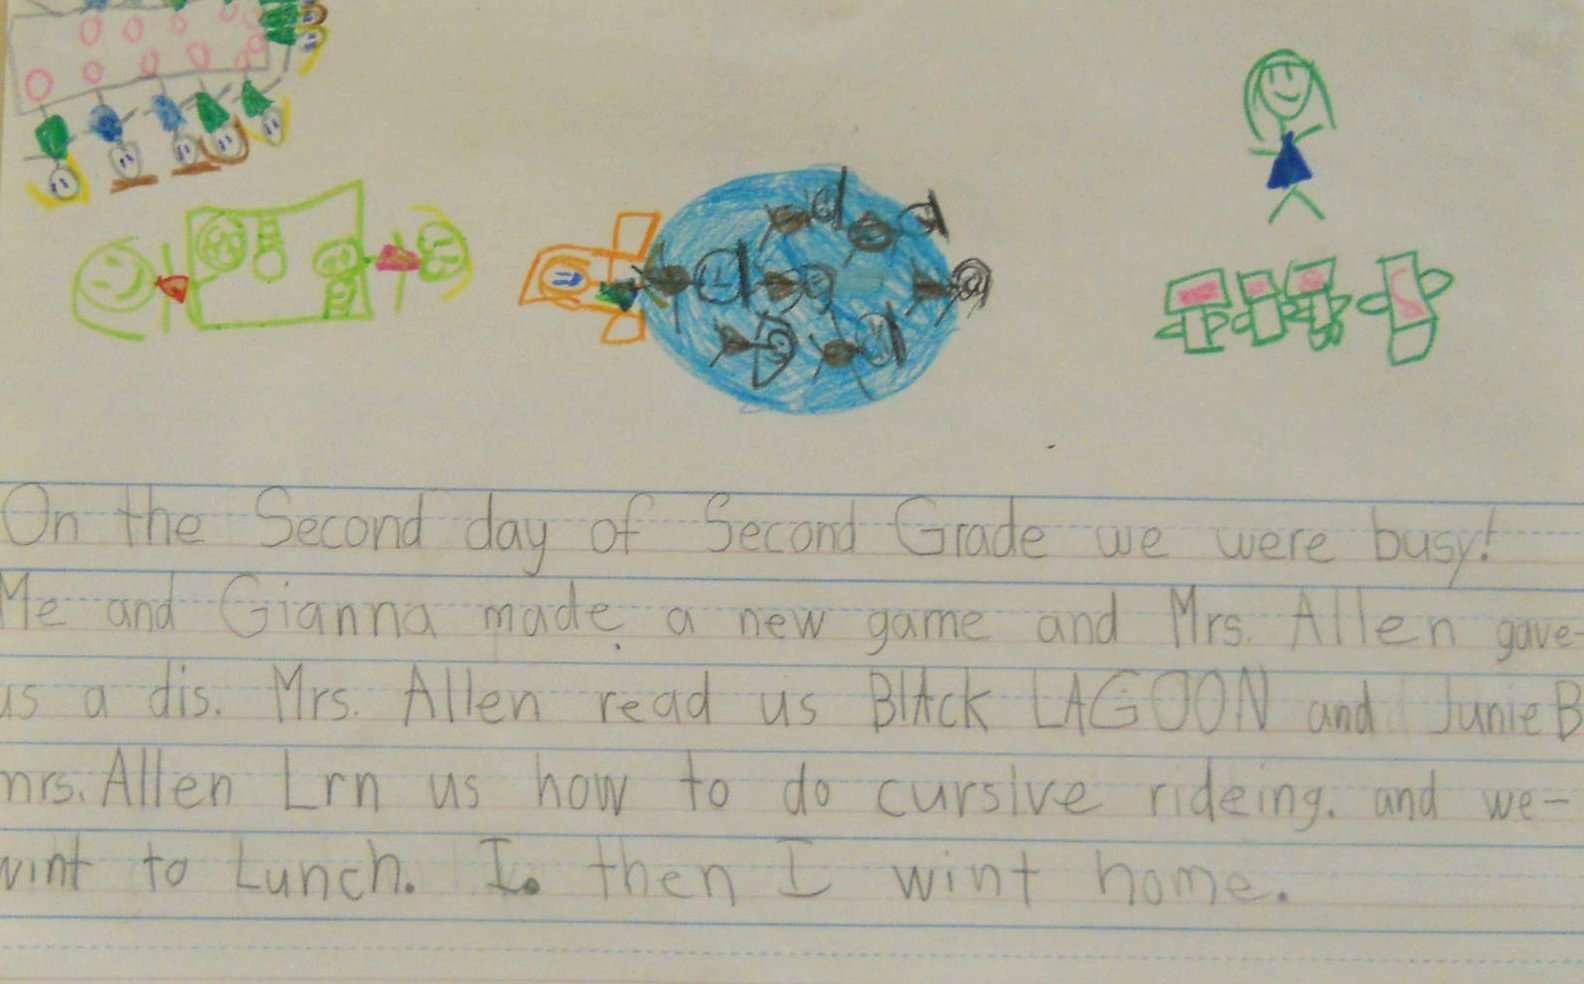 On the Second day of Second Grade we were busy!
Me and Gianna made a new game and Mrs. Allen gave-
us a dis. Mrs. Allen read us BlAck LAGOON and Junie B
mrs. Allen Lrn us how to do cursive rideing. and we-
wint to Lunch. I. then I wint home.